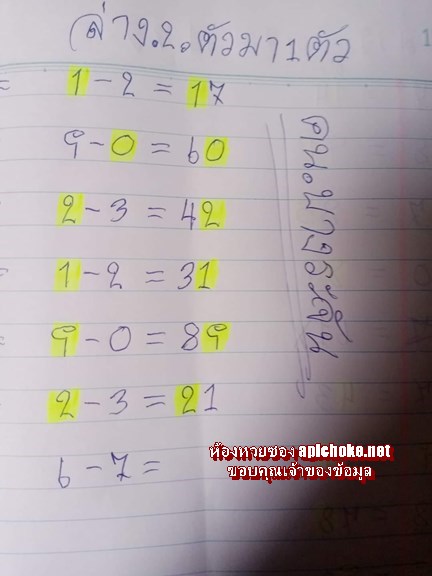 ล่าง.2.ตัวมา1ตัว
1-2 = 17
9-0 = 60
2-3 = 42
1-2 = 31
9-0 = 89
2-3 = 21
6-7 =
คน.บางระจัน
ห้องหวยซอง apichoke.net
ขอบคุณเจ้าของข้อมูล